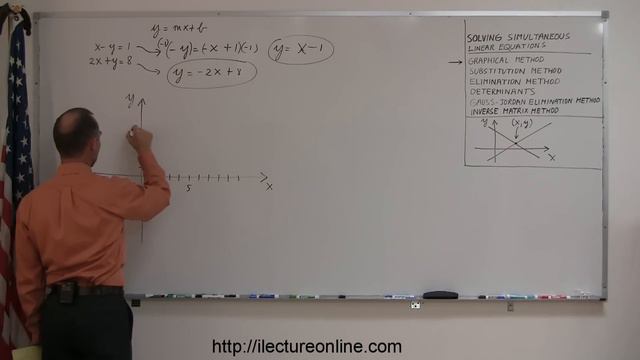 y = mx + b
x - y = 1 → (-1)(-y) = (-x + 1)(-1) y = x - 1
2x + y = 8 → y = -2x + 8
y
5
x
SOLVING SIMULTANEOUS
LINEAR EQUATIONS
→ GRAPHICAL METHOD
SUBSTITUTION METHOD
ELIMINATION METHOD
DETERMINANTS
GAUSS-JORDAN ELIMINATION METHOD
INVERSE MATRIX METHOD
y (x, y)
x
http://ilectureonline.com